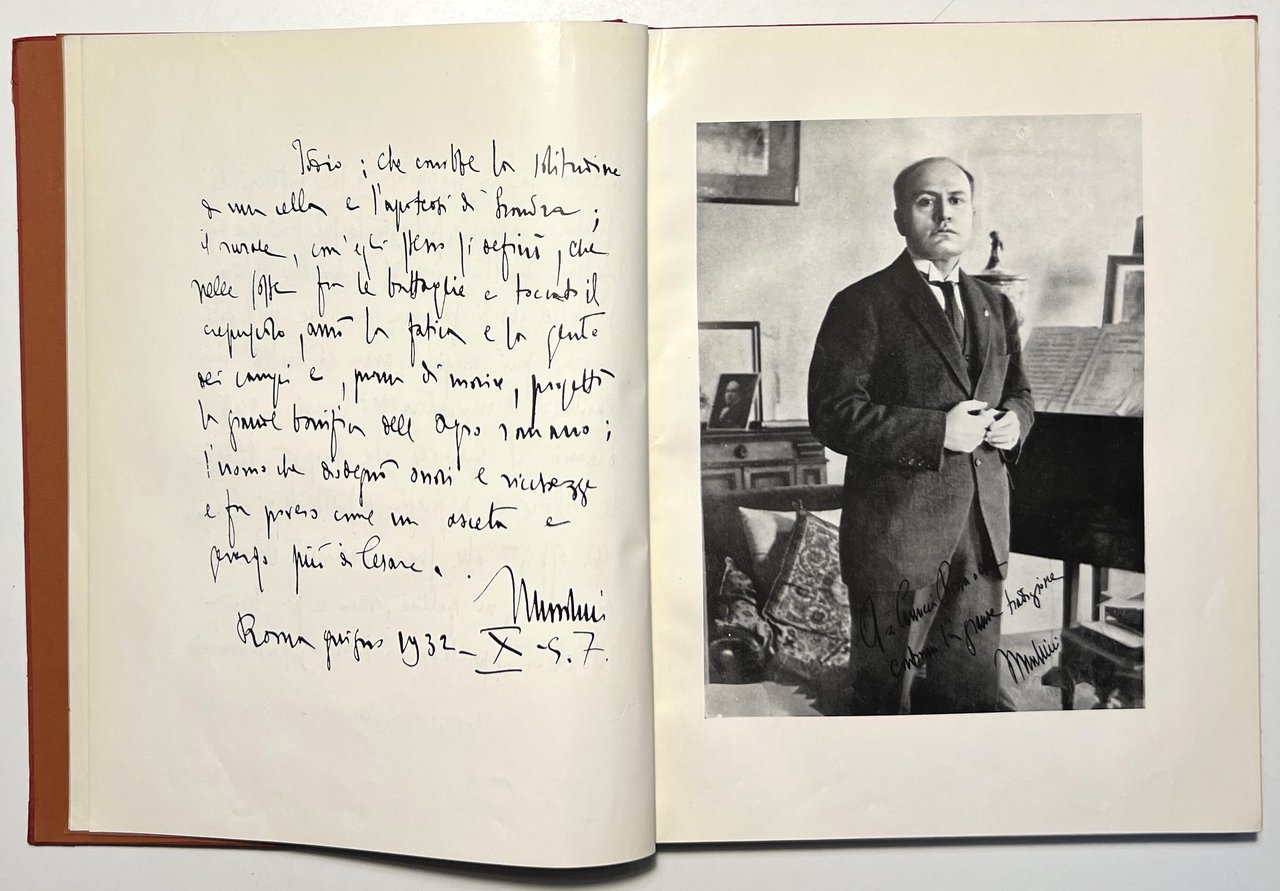 che conobbe la solitudine
di una cella e l'apoteosi di Londra;
il rurale, com'egli stesso si definì, che
nelle soste fra le battaglie e toccato il
crepuscolo, amò la fatica e la gente
dei campi e, prima di morire, progettò
la grande bonifica dell'agro romano;
l'uomo che disdegnò onori e ricchezze
e fu povero come un asceta e
più di Cesare.
Mussolini
Roma giugno 1932 - X - S. F.
A
con la grande
Mussolini